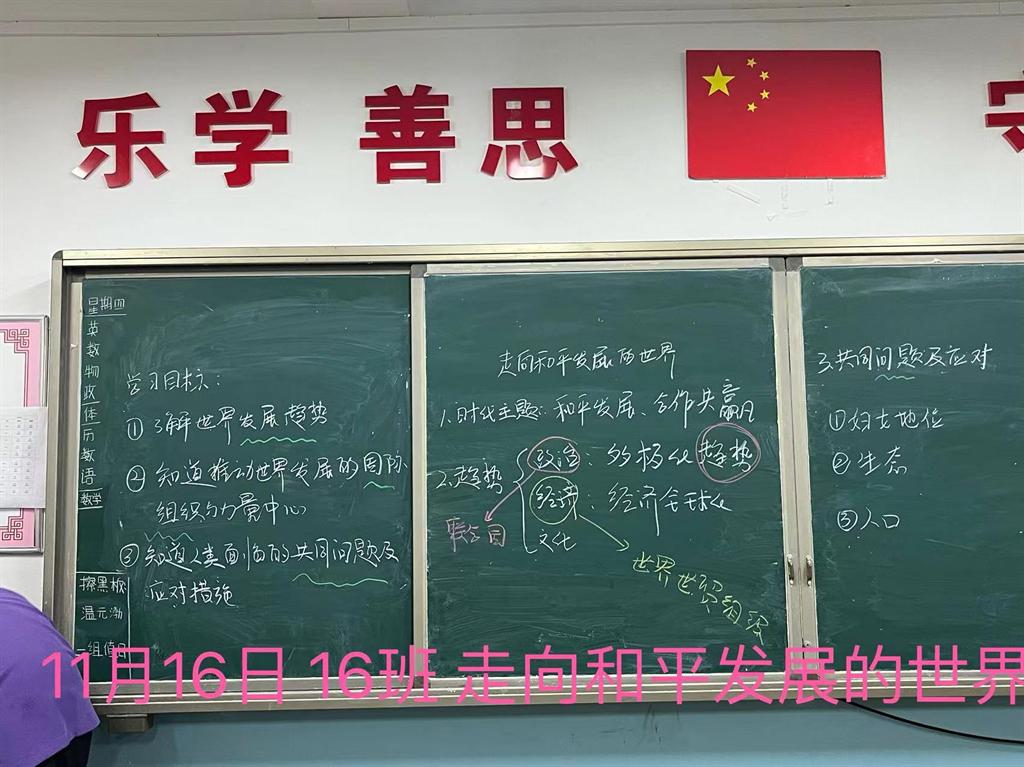 乐学 善思
星期四
英
数
物
政
体
历
数
语
数学
擦黑板
温元渤
一组值日
学习目标：
①了解世界发展趋势
②知道推动世界发展的国际
组织与力量中心
③知道人类面临的共同问题及
应对措施
走向和平发展的世界
1.时代主题：和平发展、合作共赢
2.趋势
政治：多极化趋势
经济：经济全球化
文化
联合国
世界世贸组织
3.共同问题及应对
①妇女地位
②生态
③人口
11月16日 16班 走向和平发展的世界